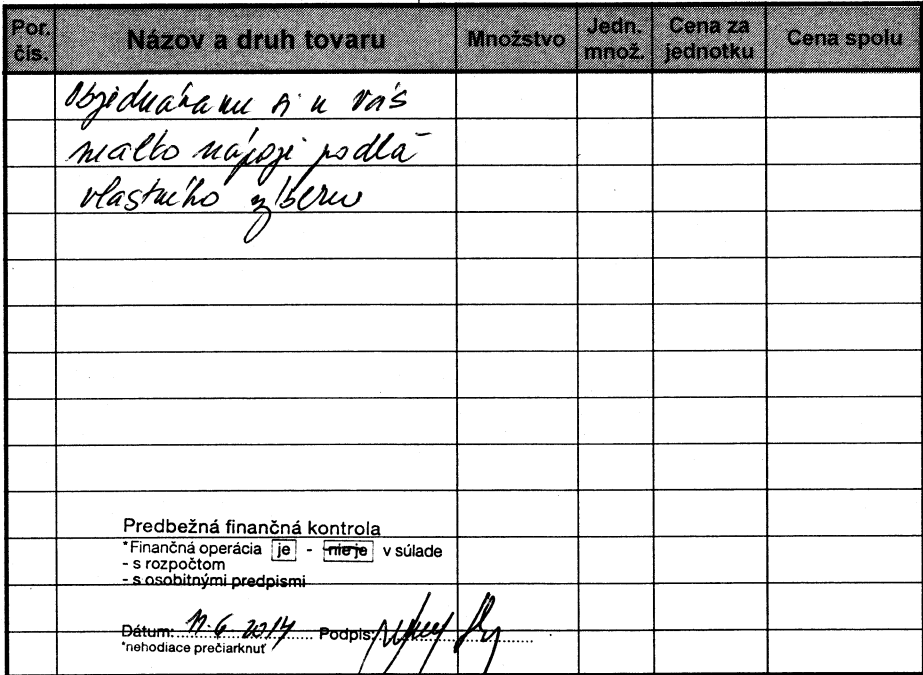 Por. čís. Názov a druh tovaru Množstvo Jedn. množ. Cena za jednotku Cena spolu
Objednávame si u Vás
nealko nápoje podla
vlastného výberu
Predbežná finančná kontrola
*Finančná operácia je - nie je v súlade
- s rozpočtom
- s osobitnými predpismi
Dátum: 11.6.2014 Podpis:
*nehodiace prečiarknuť